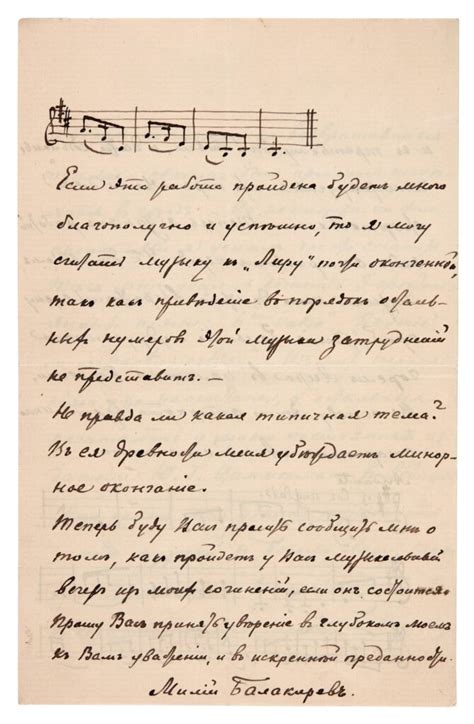 Если эта работа пройдена будетъ мною
благополучно и успѣшно, то я могу
считать музыку къ „Лиру" почти оконченной,
такъ какъ приведеніе въ порядокъ осталь-
ныхъ нумеровъ этой музыки затрудненій
не представитъ. —
Не правда ли какая типичная тема?
Въ ея древности меня убѣждаетъ минор-
ное окончаніе.
Теперь буду Васъ просить сообщить мнѣ о
томъ, какъ пройдетъ у Васъ музыкальный
вечеръ изъ моихъ сочиненій, если онъ состоится.
Прошу Васъ принять увѣреніе въ глубокомъ моемъ
къ Вамъ уваженіи, и въ искренней преданности.
Милій Балакиревъ.